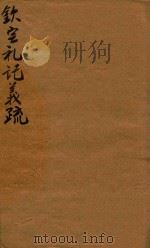 欽定礼记義疏
研狗
mtoou.info